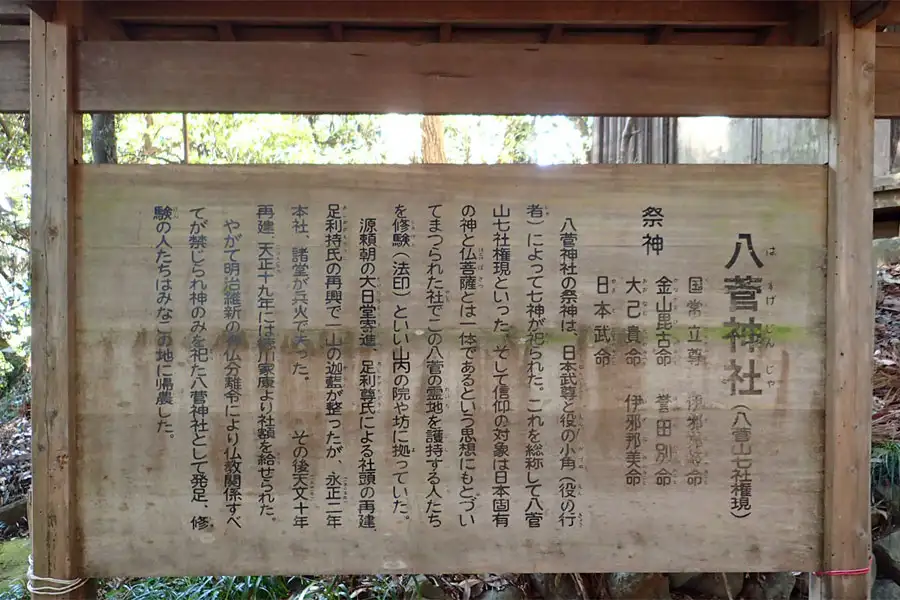 八菅神社（八菅山七社権現）
祭神
国常立尊　伊邪那岐命
金山毘古命　誉田別命
大己貴命　伊邪那美命
日本武命
八菅神社の祭神は、日本武尊と役の小角（役の行
者）によって七神が祀られた。これを総称して八菅
山七社権現といった。そして信仰の対象は日本固有
の神と仏菩薩とは一体であるという思想にもとづい
てまつられた社でこの八菅の霊地を護持する人たち
を修験（法印）といい山内の院や坊に拠っていた。
源頼朝の大日堂寄進、足利尊氏による社頭の再建、
足利持氏の再興で一山の迦藍が整ったが、永正二年
本社、諸堂が兵火で失った。　その後天文十年
再建、天正十九年には徳川家康より社領を給せられた。
やがて明治維新の神仏分離令により仏教関係すべ
てが禁じられ神のみを祀った八菅神社として発足、修
験の人たちはみなこの地に帰農した。